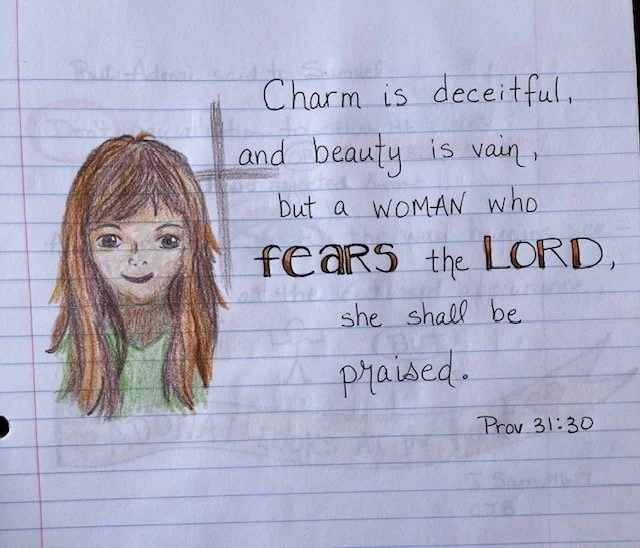 Charm is deceitful,
and beauty is vain,
but a WOMAN who
feARS the LORD,
she shall be
praised.
Prov 31:30